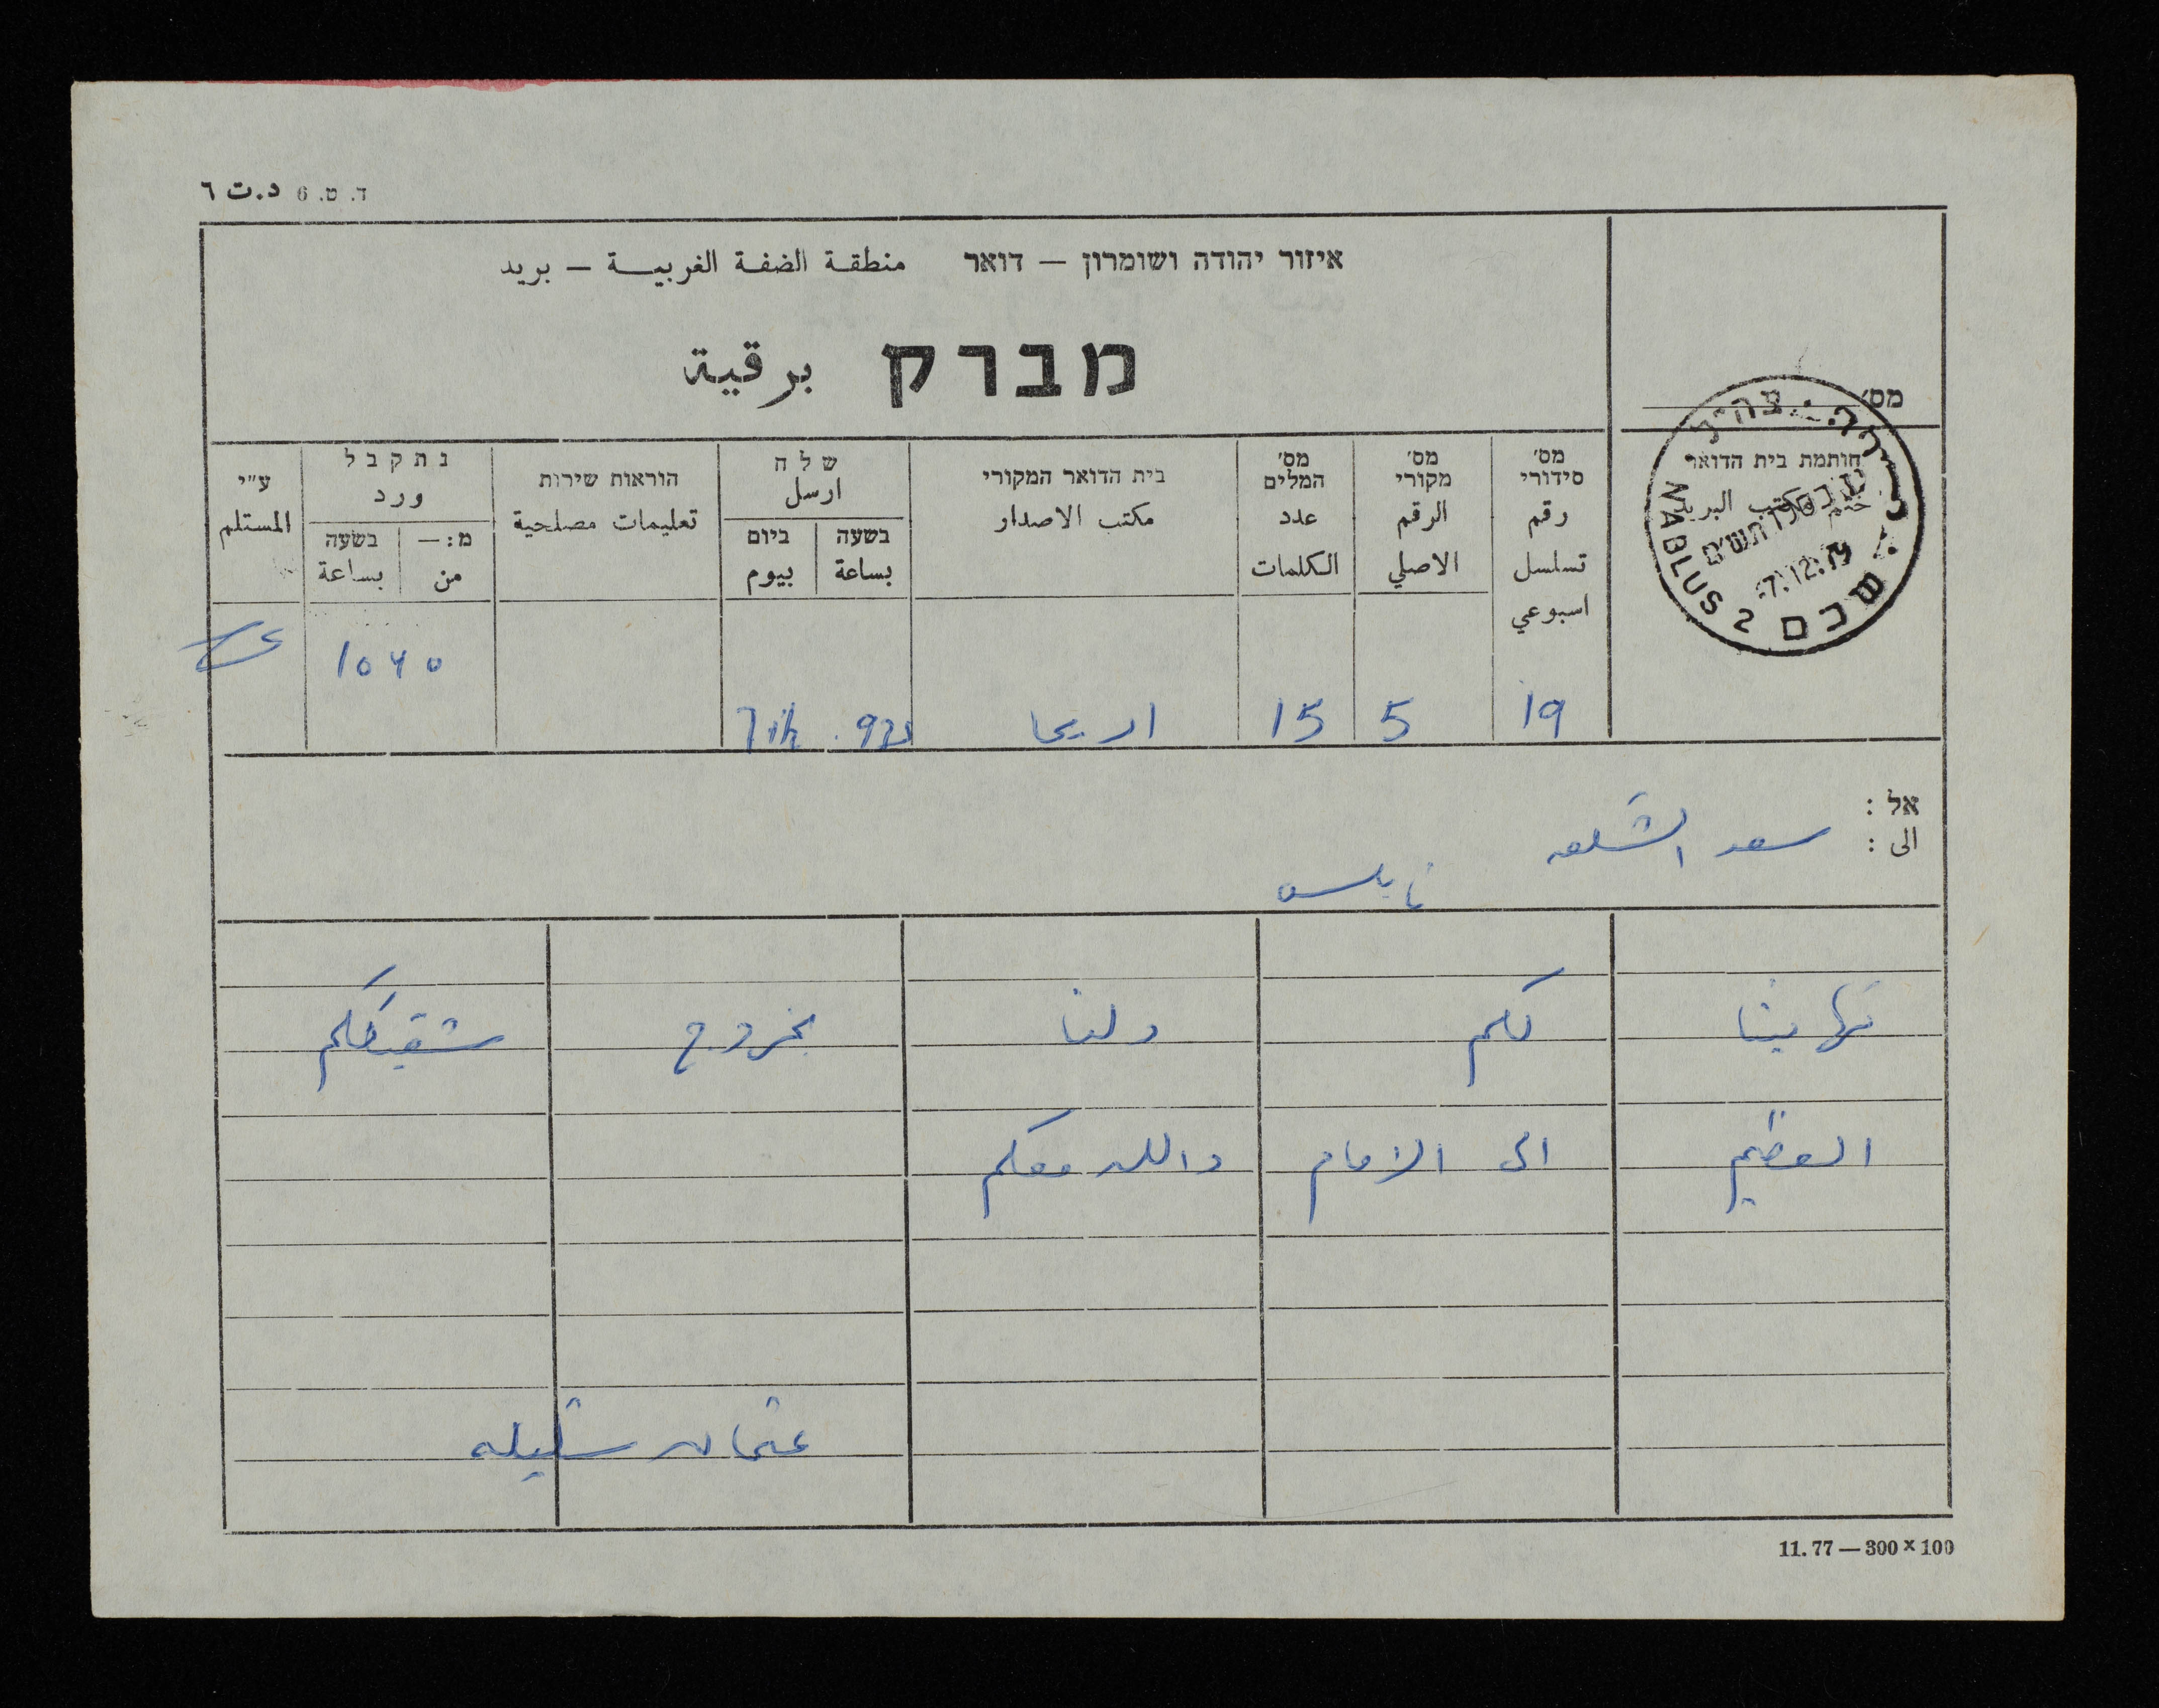 ד. ט. 6 د.ت ٦
איזור יהודה ושומרון — דואר منطقة الضفة الغربية — بريد
מברק برقية
מס׳
חותמת בית הדואר
ختم مكتب البريد
שכם NABLUS 2
-7.12.79
מס׳ סידורי
رقم تسلسل اسبوعي
מס׳ מקורי
الرقم الاصلي
מס׳ המלים
عدد الكلمات
בית הדואר המקורי
مكتب الاصدار
שלח
ارسل
בשעה
بساعة
ביום
بيوم
הוראות שירות
تعليمات مصلحية
נתקבל
ورد
מ: —
من
בשעה
بساعة
ע״י
المستلم
19 5 15 اريحا
1040
אל :
الى :
سعد الشلعه
نابلس
تهانينا لكم ولنا بخروج شقيقكم
العظيم الى الامام والله معكم
عثمان
11.77 — 300 x 100